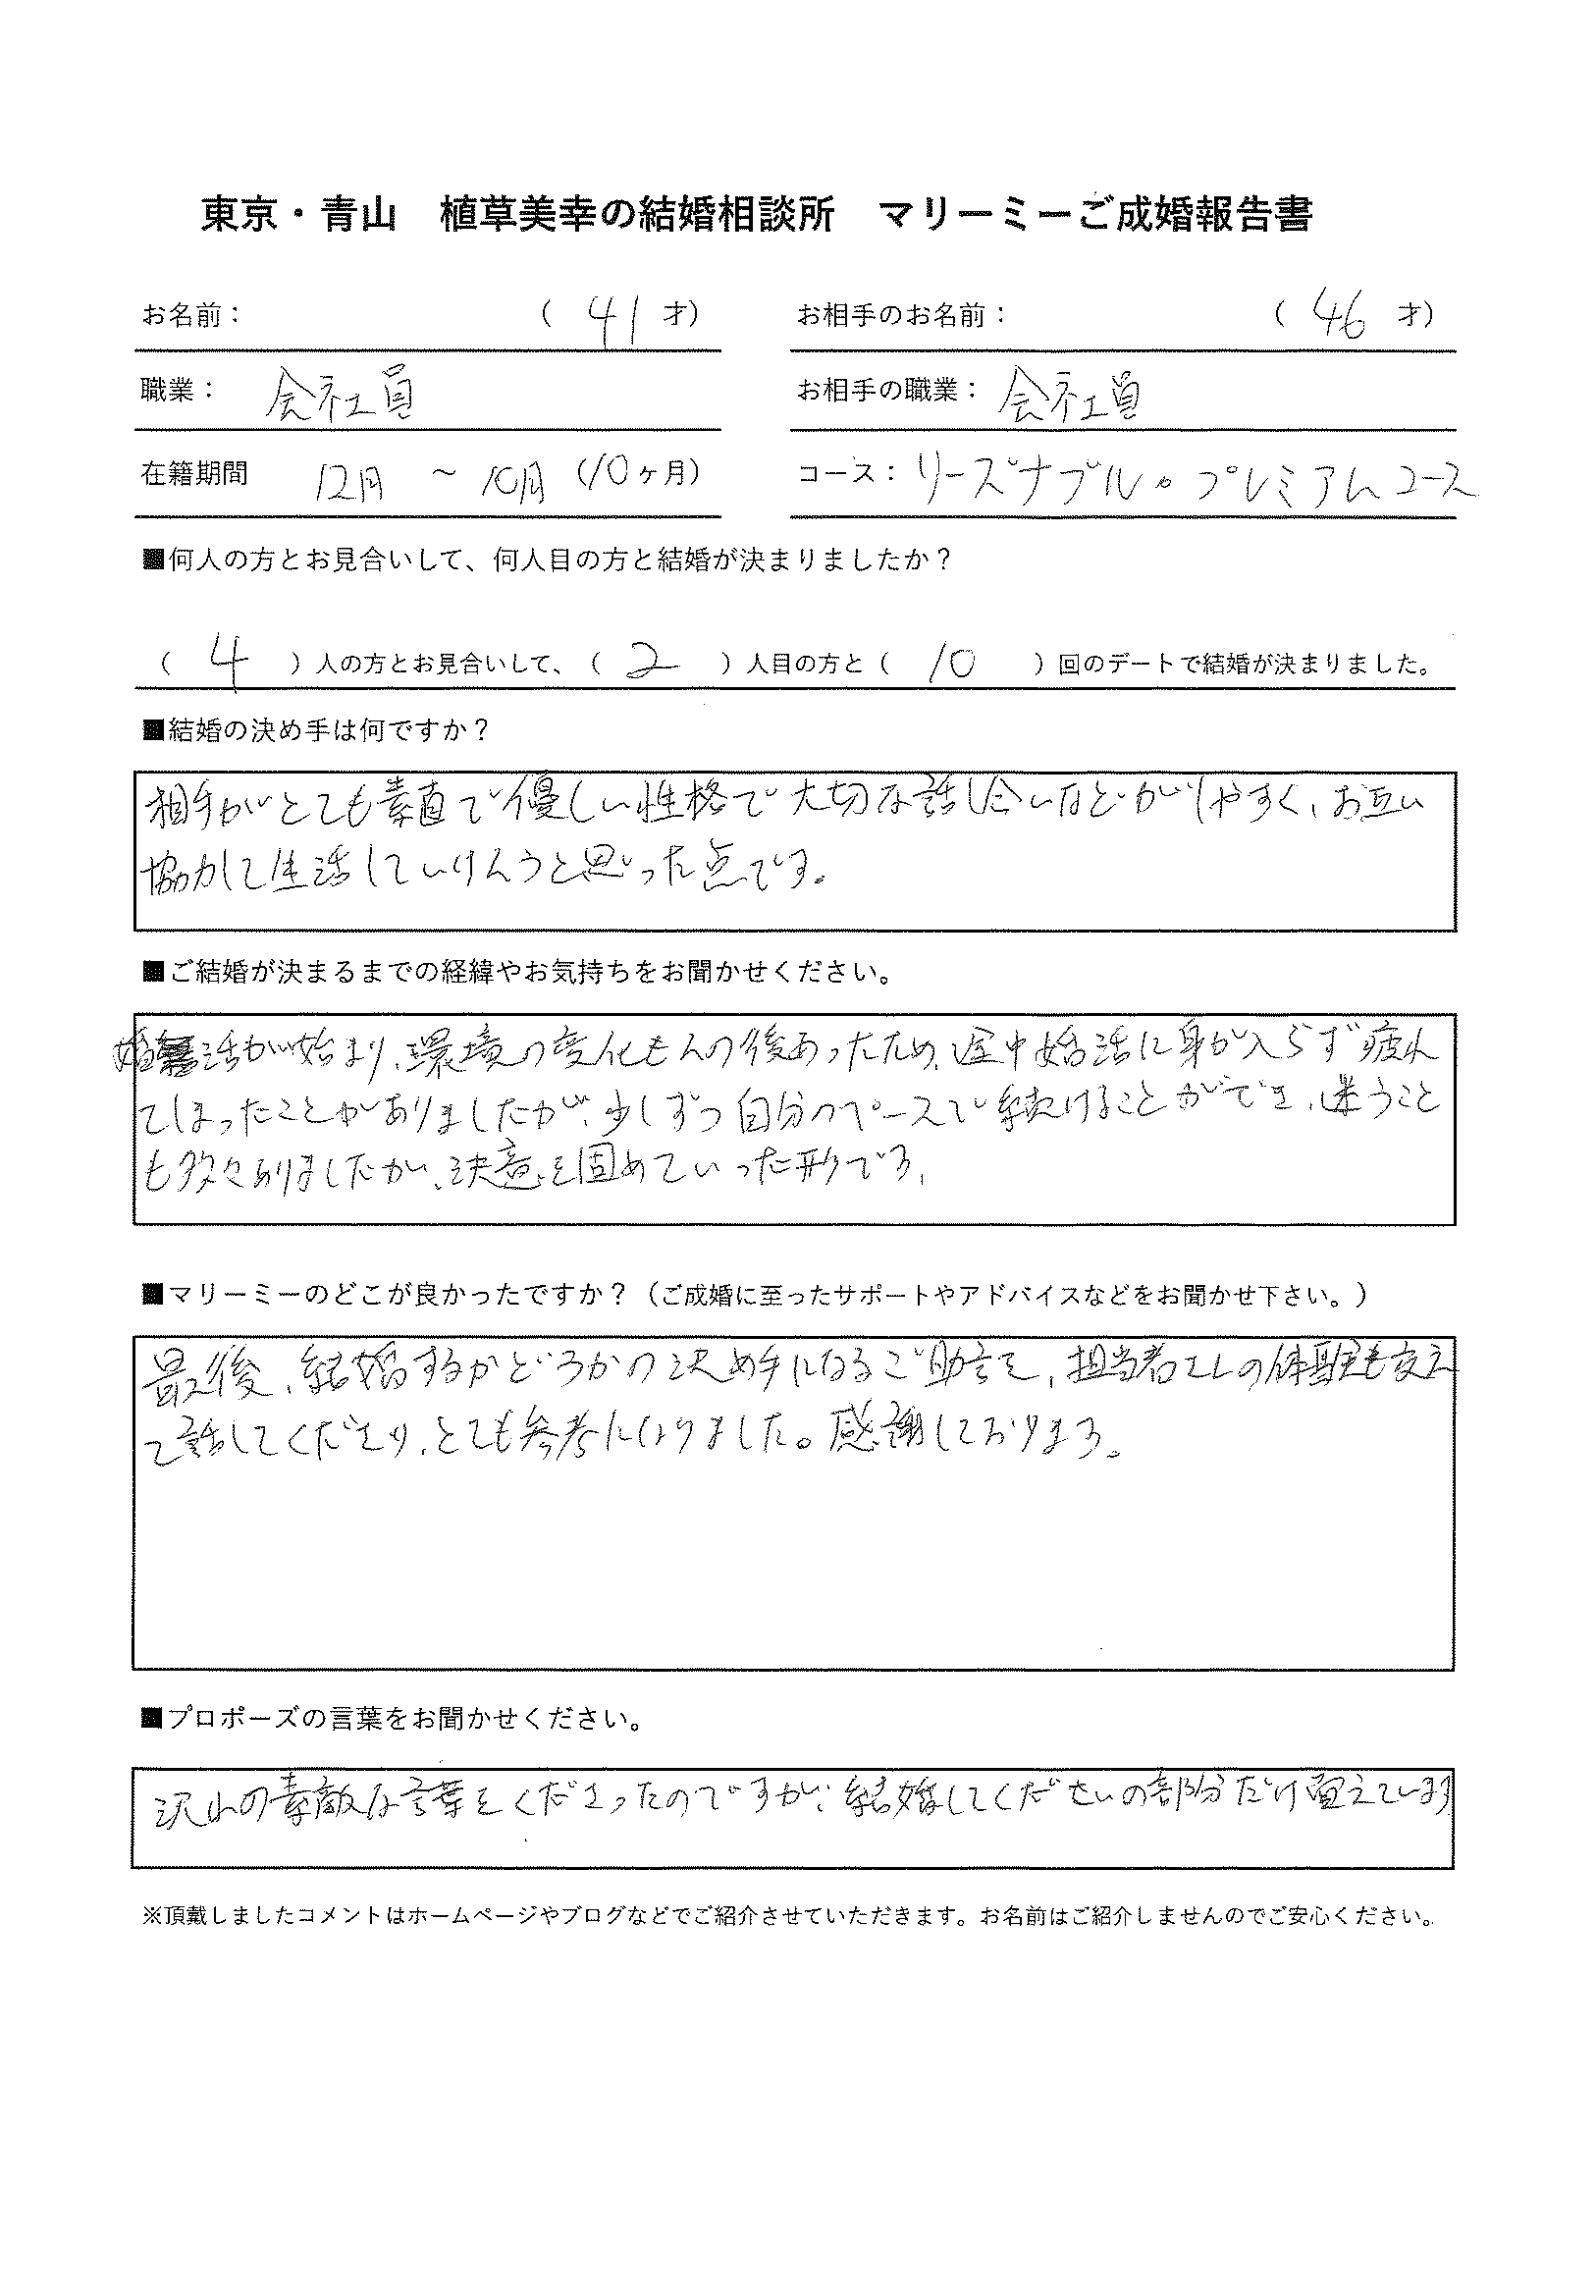 東京・青山　植草美幸の結婚相談所　マリーミーご成婚報告書
お名前：　（ 41 才）　お相手のお名前：　（ 46 才）
職業：会社員　お相手の職業：会社員
在籍期間　12月 ～ 10月（10ヶ月）　コース：リーズナブル・プレミアムコース
■何人の方とお見合いして、何人目の方と結婚が決まりましたか？
（ 4 ）人の方とお見合いして、（ 2 ）人目の方と（ 10 ）回のデートで結婚が決まりました。
■結婚の決め手は何ですか？
相手がとても素直で優しい性格で大切な話し合いなどがしやすく、お互い
協力して生活していけそうと思った点です。
■ご結婚が決まるまでの経緯やお気持ちをお聞かせください。
婚活が始まり、環境の変化もその後あったため、途中婚活に身が入らず疲れ
てしまったことがありましたが、少しずつ自分のペースで続けることができ、迷うこと
も多々ありましたが、決意を固めていった形です。
■マリーミーのどこが良かったですか？（ご成婚に至ったサポートやアドバイスなどをお聞かせ下さい。）
最後、結婚するかどうかの決め手になるご助言を、担当者さんの体験も交え
て話してくださり、とても参考になりました。感謝しております。
■プロポーズの言葉をお聞かせください。
沢山の素敵な言葉をくださったのですが、結婚してくださいの部分だけ覚えています
※頂戴しましたコメントはホームページやブログなどでご紹介させていただきます。お名前はご紹介しませんのでご安心ください。